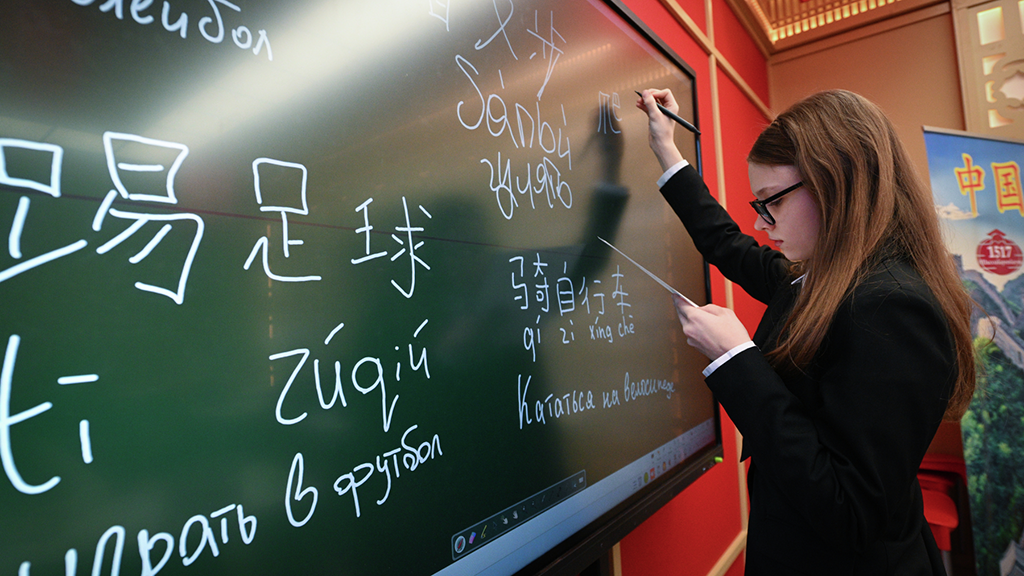 лейбол
踢足球
tī zúqiú
играть в футбол
步
гулять
骑自行车
qí zì xíng chē
Кататься на велосипеде
中国
1517